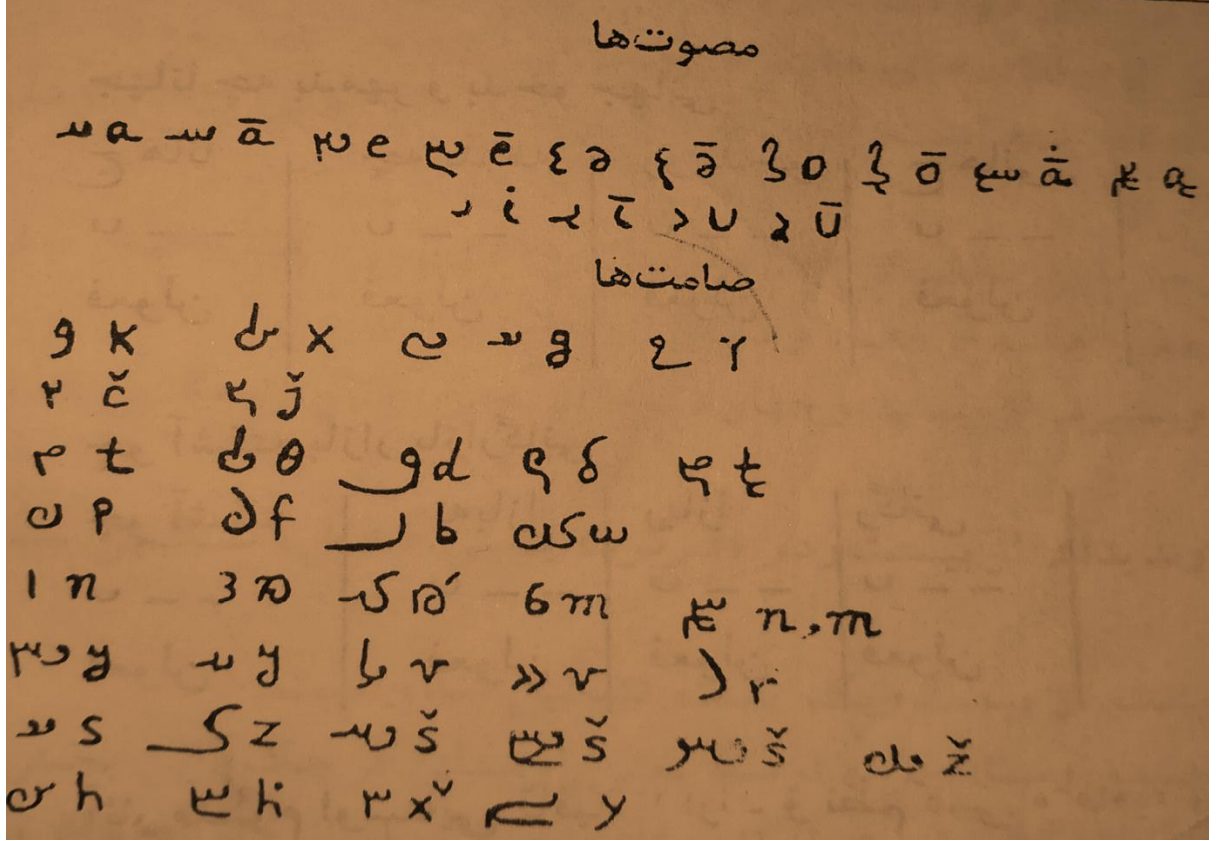 مصوت‌ها
𐬀 a 𐬁 ā 𐬈 e 𐬉 ē 𐬆 ə 𐬇 ə̄ 𐬊 o 𐬋 ō 𐬃 ā̇ 𐬄 ą
𐬌 i 𐬍 ī 𐬎 u 𐬏 ū
صامت‌ها
𐬐 k 𐬑 x g 𐬖 γ
𐬗 č 𐬘 ǰ
𐬙 t 𐬚 θ 𐬛 d 𐬜 δ 𐬝 t̰
𐬞 p 𐬟 f 𐬠 b
𐬥 n 𐬢 ŋ 𐬣 ŋ́ 𐬨 m n,m
𐬫 y 𐬌𐬌 y 𐬬 v 𐬎𐬎 v 𐬭 r
𐬯 s 𐬰 z 𐬱 š 𐬴 š 𐬳 š 𐬲 ž
𐬵 h 𐬓 x̌ y